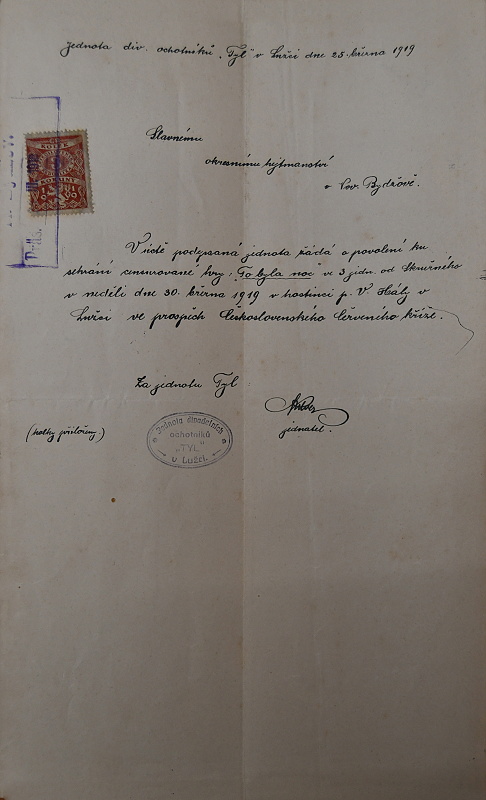 Jednota div. ochotníků „Tyl“ v Lužci dne 25. března 1919
Slavnému
okresnímu hejtmanství
v Nov. Bydžově.
V úctě podepsaná jednota žádá o povolení ku
sehrání censurované hry: To byla noc ve 3 jedn. od Skružného
v neděli dne 30. března 1919 v hostinci p. V. Hály v
Lužci ve prospěch Československého Červeného kříže.
Za jednotu Tyl
jednatel.
(kolky přiloženy)
Jednota divadelních
ochotníků
„TYL“
v Lužci.